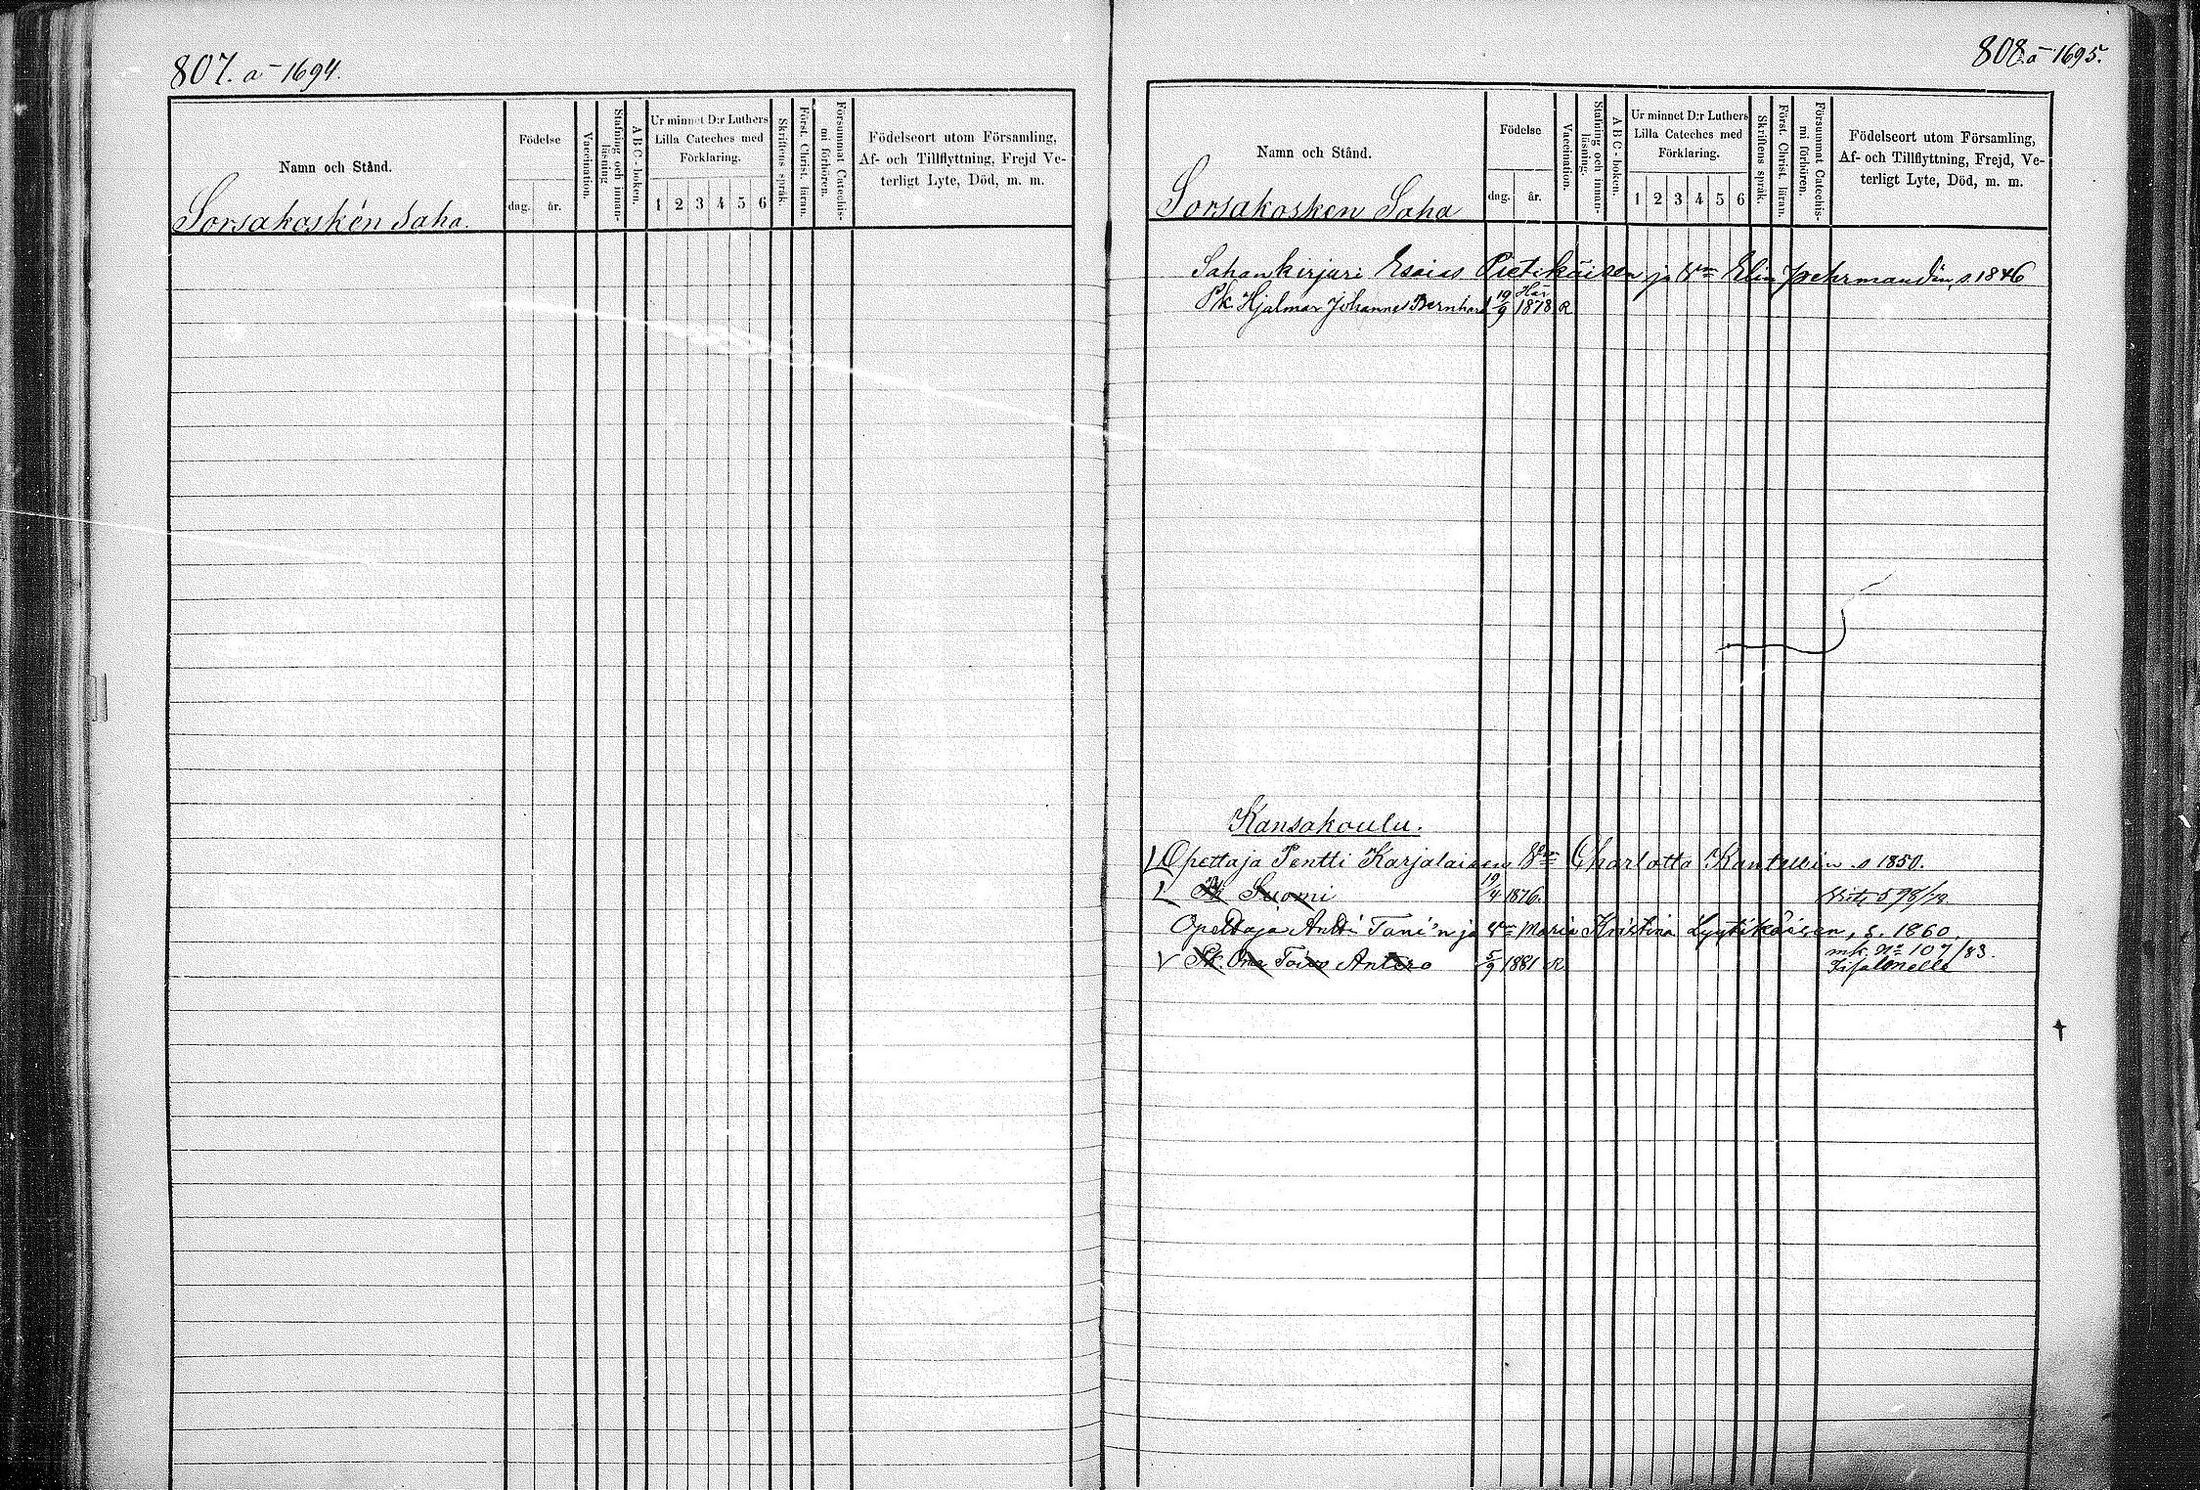 807. a - 1694.
Namn och Stånd.
Sorsakosken Saha.
Födelse
dag. år.
Vaccination.
Stafning och innan-
läsning
A B C - boken.
Ur minnet D:r Luthers
Lilla Cateches med
Förklaring.
1 2 3 4 5 6
Skriftens språk.
Först. Christ. läran.
Försummat Catechis-
mi förhören.
Födelseort utom Församling,
Af- och Tillflyttning, Frejd Ve-
terligt Lyte, Död, m. m.
808 a - 1695.
Namn och Stånd.
Sorsakosken Saha
Födelse
dag. år.
Vaccination.
Stafning och innan-
läsning.
A B C - boken.
Ur minnet D:r Luthers
Lilla Cateches med
Förklaring.
1 2 3 4 5 6
Skriftens språk.
Först. Christ. läran.
Försummat Catechis-
mi förhören.
Födelseort utom Församling,
Af- och Tillflyttning, Frejd, Ve-
terligt Lyte, Död, m. m.
Sahankirjuri Esaias Pietikäisen ja Vm Elin s. 1846
Pk Hjalmar Johannes Bernhard 19/9 1878 R
Kansakoulu.
Opettaja Pentti Karjalaisen Vm Charlotta s 1850.
Pk Suomi 19/4 1876.
Opettaja Antti Tani'n ja Vm Maria Kristina Lyytikäisen, s. 1860,
Pk. Onni Toivo Antero 5/9 1881 R
mk. No 107/83.